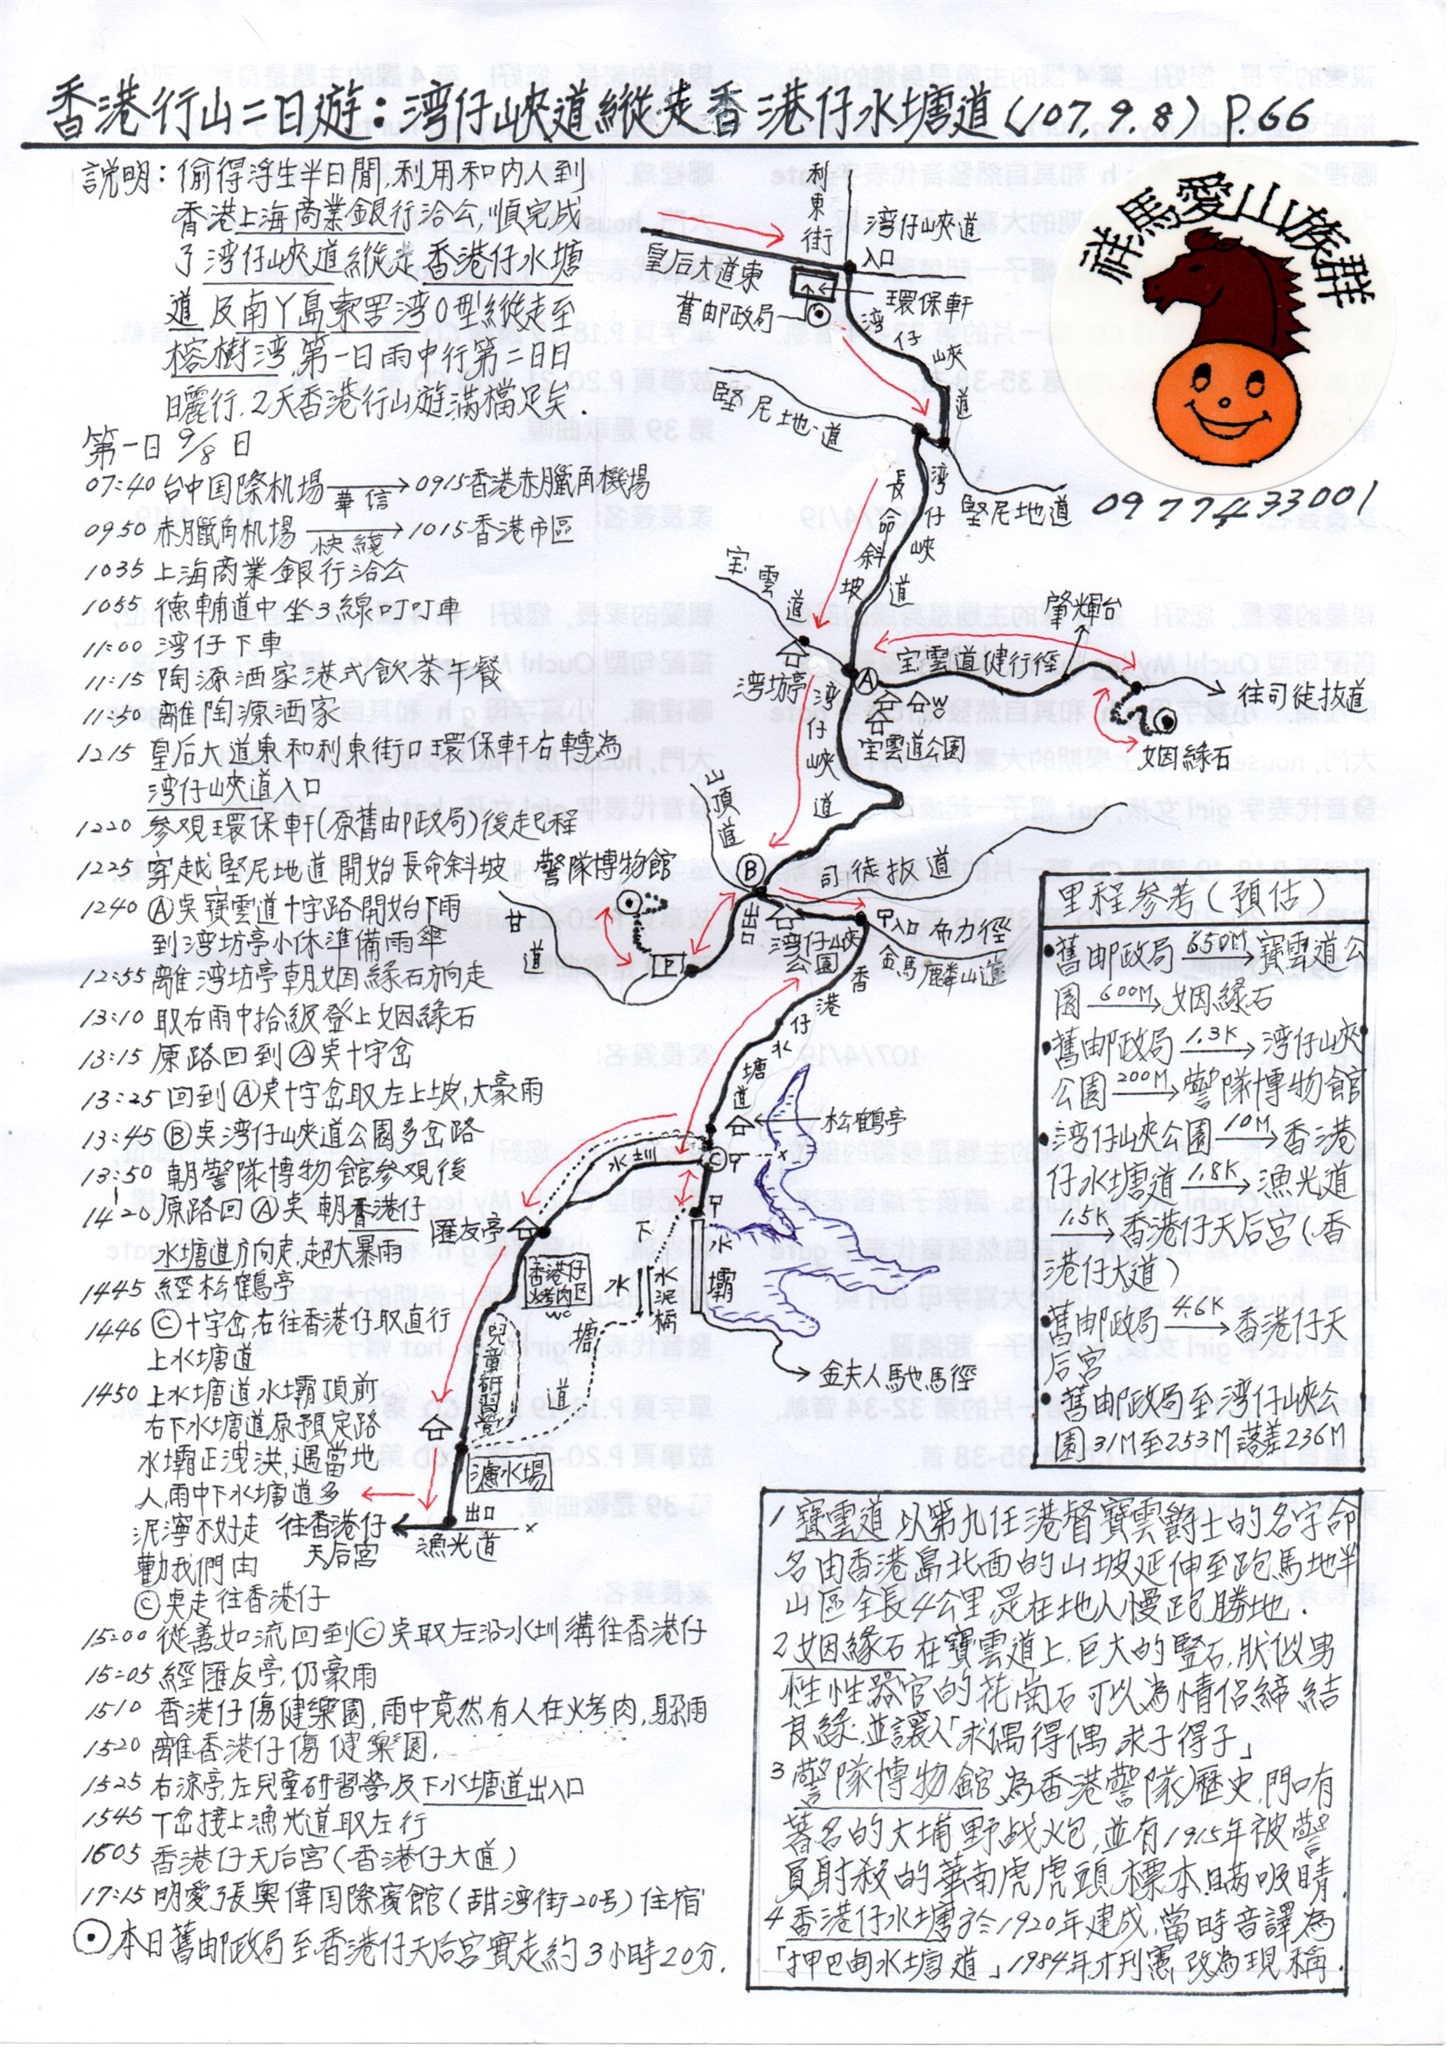 香港行山二日遊：湾仔峽道縱走香港仔水塘道(107.9.8) P.66
説明：偷得浮生半日閒,利用和内人到
香港上海商業銀行洽公順完成
了湾仔峽道縱走香港仔水塘
道及南丫島索罟湾O型縱走至
榕樹湾.第一日雨中行第二日日
日曬行.2天香港行山遊滿檔足矣.
第一日 9/8 日
07:40 台中国際机場 華信 → 0915香港赤臘角機場
0950 赤臘角机場 快綫 → 1015香港市區
1035 上海商業銀行洽公
1055 德輔道中坐3線叮叮車
11:00 湾仔下車
11:15 陶源酒家港式飲茶午餐
11:50 離陶源酒家
1215 皇后大道東和利東街口環保軒右轉為
湾仔峽道入口
1220 參观環保軒(原舊邮政局)後起程
1225 穿越堅尼地道開始長命斜坡
1240 Ⓐ点寶雲道十字路開始下雨
到湾坊亭小休準備雨傘
12:55 離湾坊亭朝姻緣石方向走
13:10 取右雨中拾級登上姻緣石
13:15 原路回到Ⓐ点十字岔
13:25 回到Ⓐ点十字岔取左上坡,大豪雨
13:45 Ⓑ点湾仔峽道公園多岔路
13:50 朝警隊博物館參观後
1420 原路回Ⓐ点朝香港仔
水塘道方向走,起大暴雨
1445 經松鶴亭
1446 Ⓒ十字岔,右往香港仔取直行
上水塘道
1450 上水塘道水壩頂前
右下水塘道原預定路
水壩正洩洪,遇當地
人,雨中下水塘道多
泥濘不好走
勸我們由
Ⓒ点走往香港仔
15:00 從善如流回到Ⓒ点取左沿水圳溝往香港仔
15:05 經匯友亭,仍豪雨
1510 香港仔傷健樂園,雨中竟然有人在火烤肉,躲雨
1520 離香港仔傷健樂園.
1525 右涼亭,左兒童研習營及下水塘道出入口
1545 T岔接上漁光道取左行
1605 香港仔天后宫(香港仔大道)
17:15 明愛張奥偉国際賓館(甜湾街20号)住宿
⊙本日舊邮政局至香港仔天后宫實走約3小時20分.
祥馬愛山族群
0977433001
利東街
湾仔峽道
入口
皇后大道東
環保軒
舊邮政局
湾仔峽道
堅尼地道
湾仔峽道
長命斜坡
堅尼地道
宝雲道
肇輝台
宝雲道健行徑
湾坊亭
Ⓐ
往司徒拔道
宝雲道公園
姻緣石
湾仔峽道
山頂道
Ⓑ
司徒拔道
警隊博物館
出口
入口
布力徑
甘道
湾仔峽公園
金馬麟山道
香港仔水塘道
松鶴亭
水圳
Ⓒ
匯友亭
香港仔
烤肉区
WC
下水塘道
水泥橋
水壩
兒童研習營
金夫人馳馬徑
濾水場
出口
往香港仔
天后宫
漁光道
里程參考(預估)
•舊邮政局 650M → 寶雲道公
園 600M → 姻緣石
•舊邮政局 1.3K → 湾仔峽
公園 200M → 警隊博物館
•湾仔峽公園 10M → 香港
仔水塘道 1.8K → 漁光道
1.5K → 香港仔天后宫(香
港仔大道)
•舊邮政局 4.6K → 香港仔天
后宫
•舊邮政局至湾仔峽公
園31M至253M落差236M
1 寶雲道以第九任港督寶雲爵士的名字命
名由香港島北面的山坡延伸至跑馬地半
山區全長4公里,是在地人慢跑勝地.
2 姻緣石在寶雲道上.巨大的豎石,狀似男
性性器官的花崗石可以為情侣締結
良緣.並讓人「求偶得偶,求子得子」
3 警隊博物館為香港警隊歷史,門口有
著名的大埔野战炮,並有1915年被警
員射殺的華南虎虎頭標本.滿吸睛.
4 香港仔水塘於1920年建成,當時音譯為
「押巴甸水塘道」1984年才刊憲,改為現稱.